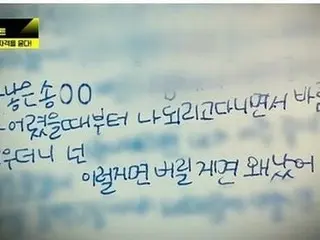 트
자격을 묻다!
낳은 송OO
어렸을때부터 나 되리고다니면서 바람
우더니 넌
이럴게면 버릴 게면 왜났어